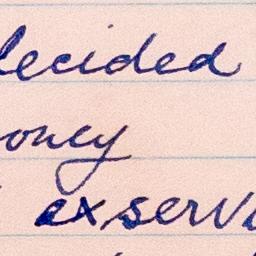 decided
oney
exserv